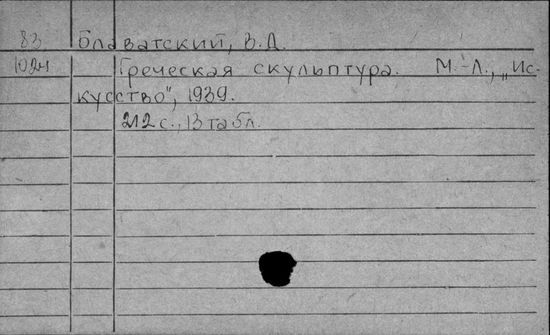 83 Блаватский, В.Д.
1024 Греческая скульптура. М.-Л., „Ис-
кусство", 1939.
212 с., 13 табл.